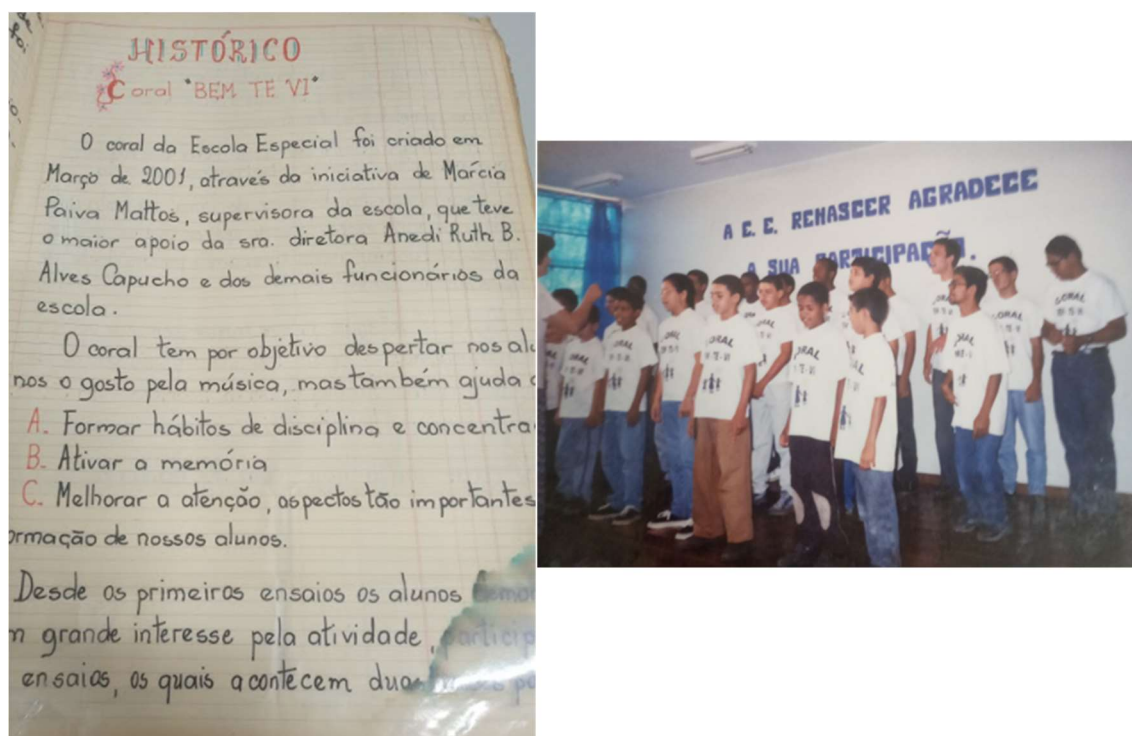 HISTÓRICO
Coral "BEM TE VI"
O coral da Escola Especial foi criado em
Março de 2001, através da iniciativa de Márcia
Paiva Mattos, supervisora da escola, que teve
o maior apoio da sra. diretora Anedi Ruth B.
Alves Capucho e dos demais funcionários da
escola.
O coral tem por objetivo despertar nos alu
nos o gosto pela música, mas também ajuda
A. Formar hábitos de disciplina e concentra
B. Ativar a memória
C. Melhorar a atenção, aspectos tão importantes
ormação de nossos alunos.
Desde os primeiros ensaios os alunos demo
m grande interesse pela atividade, particip
ensaios, os quais acontecem duas
A C. E. RENASCER AGRADECE
A SUA PARTICIPAÇÃO.
CORAL
CORAL
CORAL
CORAL